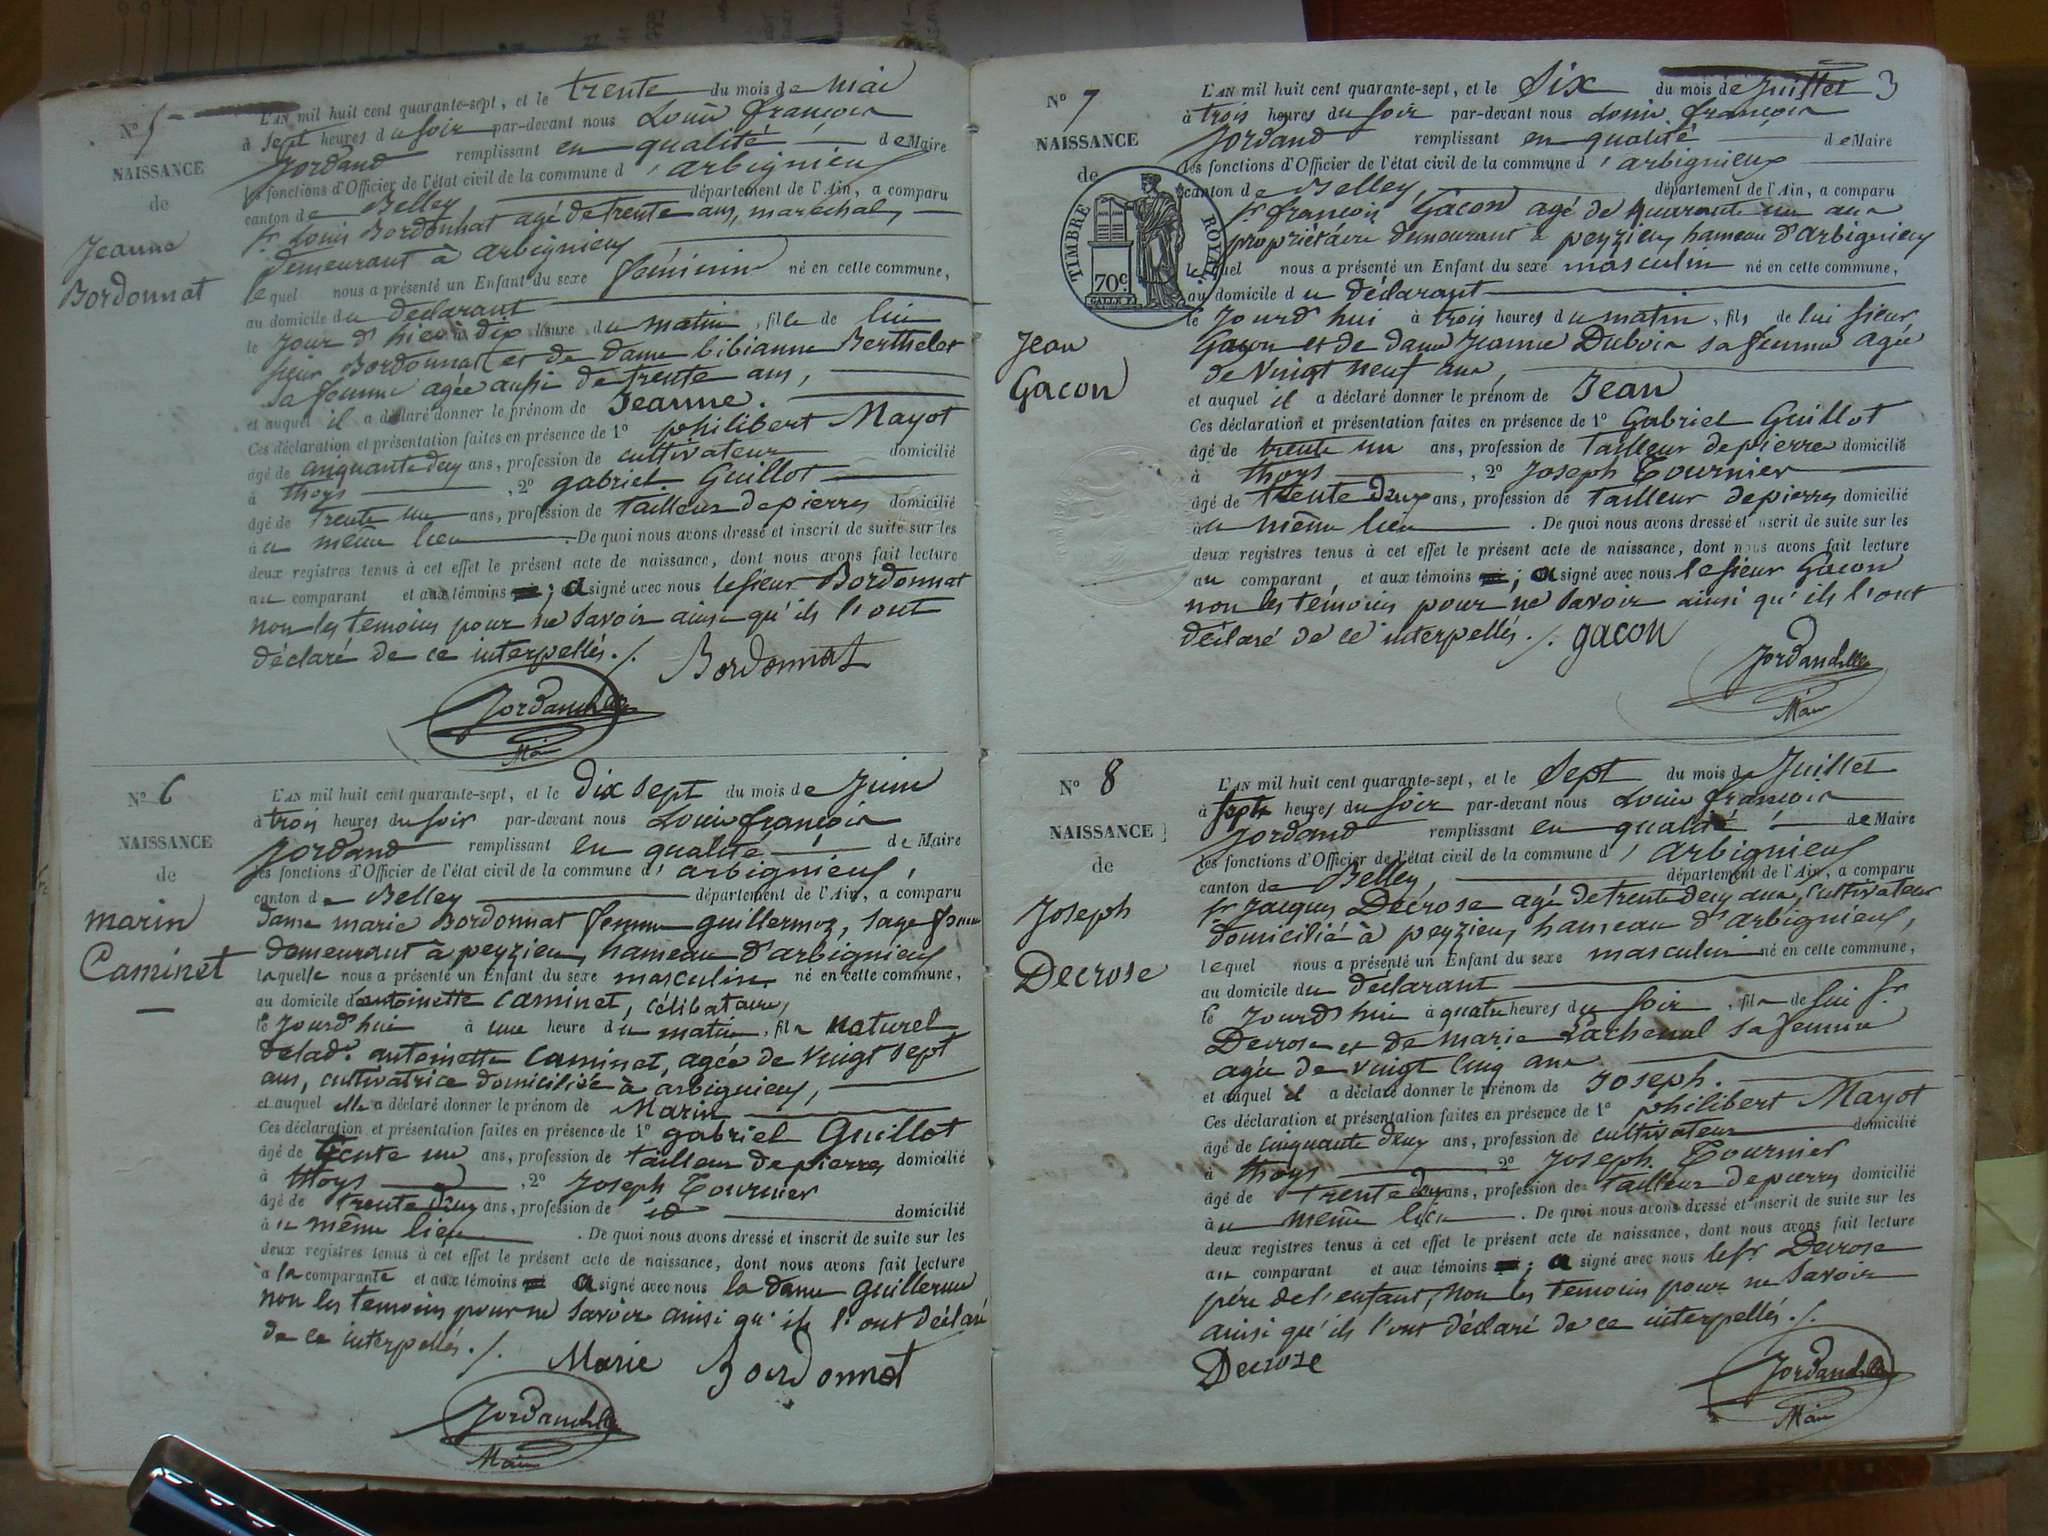 N° 5
NAISSANCE
de
Jeanne
Bordonnat
L'AN mil huit cent quarante-sept, et le trente du mois de mai
à sept heures du soir par-devant nous Louis françois
Jordand remplissant en qualité de Maire
les fonctions d'Officier de l'état civil de la commune d'arbignieu
canton de Belley, département de l'Ain, a comparu
sr Louis Bordonnat agé de trente ans, marechal,
demeurant à arbignieu
lequel nous a présenté un Enfant du sexe féminin né en cette commune,
au domicile du déclarant
le jour d'hier à dix heure du matin, fille de lui
sieur Bordonnat et de dame bibianne Berthelet
sa femme agée aussi de trente ans,
et auquel il a déclaré donner le prénom de Jeanne.
Ces déclaration et présentation faites en présence de 1° philibert Mayot
âgé de cinquante deux ans, profession de cultivateur domicilié
à thoys, 2° gabriel Guillot
âgé de trente un ans, profession de tailleur de pierres domicilié
au même lieu. De quoi nous avons dressé et inscrit de suite sur les
deux registres tenus à cet effet le présent acte de naissance, dont nous avons fait lecture
au comparant et aux témoins; a signé avec nous le sieur Bordonnat
non les temoins pour ne savoir ainsi qu'ils l'ont
déclaré de ce interpellés./.
Bordonnat
Jordand
Maire
N° 6
NAISSANCE
de
marin
Caminet
L'AN mil huit cent quarante-sept, et le dix sept du mois de Juin
à trois heures du soir par-devant nous Louis françois
Jordand remplissant en qualité de Maire
les fonctions d'Officier de l'état civil de la commune d'arbignieu,
canton de Belley département de l'Ain, a comparu
dame marie Bordonnat femme guillermoz, sage femme
demeurant à peyzieu, hameau d'arbignieu
laquelle nous a présenté un Enfant du sexe masculin né en cette commune,
au domicile d'antoinette Caminet, célibataire,
le jourd'hui à une heure du matin, fils naturel
de lad.e antoinette Caminet, agée de vingt sept
ans, cultivatrice domiciliée à arbignieu,
et auquel elle a déclaré donner le prénom de Marin
Ces déclaration et présentation faites en présence de 1° gabriel Guillot
âgé de trente un ans, profession de tailleur de pierres domicilié
à thoys, 2° Joseph Tournier
âgé de trente deux ans, profession de id domicilié
au même lieu. De quoi nous avons dressé et inscrit de suite sur les
deux registres tenus à cet effet le présent acte de naissance, dont nous avons fait lecture
à la comparante et aux témoins a signé avec nous la dame Guillerme
non les temoins pour ne savoir ainsi qu'ils l'ont déclaré
de ce interpellés./.
Marie Bourdonnat
Jordand
Maire
3
N° 7
NAISSANCE
de
TIMBRE ROYAL
70c
Jean
Gacon
L'AN mil huit cent quarante-sept, et le Six du mois de Juillet
à trois heures du soir par-devant nous Louis françois
Jordand remplissant en qualité de Maire
les fonctions d'Officier de l'état civil de la commune d'arbignieu
canton de Belley, département de l'Ain, a comparu
sr françois Gacon agé de quarante un ans
propriétaire demeurant à peyzieu hameau d'arbignieu
lequel nous a présenté un Enfant du sexe masculin né en cette commune,
au domicile du déclarant
le jourd'hui à trois heures du matin, fils de lui sieur
Gacon et de dame Jeanne Dubois sa femme agée
de vingt neuf ans,
et auquel il a déclaré donner le prénom de Jean
Ces déclaration et présentation faites en présence de 1° Gabriel Guillot
âgé de trente un ans, profession de tailleur de pierre domicilié
à thoys, 2° Joseph Tournier
âgé de trente deux ans, profession de tailleur de pierres domicilié
au même lieu. De quoi nous avons dressé et inscrit de suite sur les
deux registres tenus à cet effet le présent acte de naissance, dont nous avons fait lecture
au comparant, et aux témoins; a signé avec nous le sieur Gacon
non les témoins pour ne savoir ainsi qu'ils l'ont
déclaré de ce interpellés./. gacon
Jordand
Maire
N° 8
NAISSANCE
de
Joseph
Decrose
L'AN mil huit cent quarante-sept, et le Sept du mois de Juillet
à sept heures du soir par-devant nous Louis françois
Jordand remplissant en qualité de Maire
les fonctions d'Officier de l'état civil de la commune d'arbignieu
canton de Belley, département de l'Ain, a comparu
sr Jacques Decrose agé de trente deux ans, cultivateur
domicilié à peyzieu, hameau d'arbignieu,
lequel nous a présenté un Enfant du sexe masculin né en cette commune,
au domicile du déclarant
le jourd'hui à quatre heures du soir, fils de lui sr
Decrose et de marie Lachenal sa femme
agée de vingt cinq ans
et auquel il a déclaré donner le prénom de Joseph.
Ces déclaration et présentation faites en présence de 1° philibert Mayot
âgé de cinquante deux ans, profession de cultivateur domicilié
à thoys, 2° Joseph Tournier
âgé de trente deux ans, profession de tailleur de pierres domicilié
au même lieu. De quoi nous avons dressé et inscrit de suite sur les
deux registres tenus à cet effet le présent acte de naissance, dont nous avons fait lecture
au comparant et aux témoins; a signé avec nous le sr Decrose
père de l'enfant, non les temoins pour ne savoir
ainsi qu'ils l'ont déclaré de ce interpellés./.
Decrose
Jordand
Maire